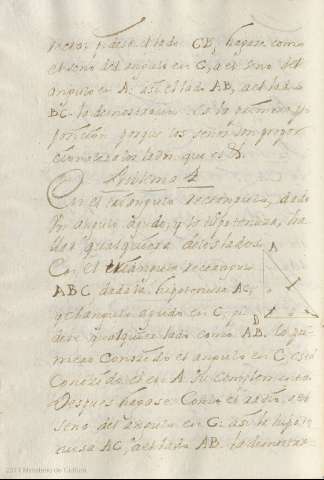 el seno del angulo en C, a el seno del
angulo en A. asi el lado AB, a el lado
BC. la demostracion es la primera pro
porcion porque los senos son propor
cionales a los lados que es &.
Problema 4
En el triangulo rectangulo, dado
un angulo agudo, y la hipotenusa, ha
llar qualquiera de los lados. A
En el triangulo rectangulo
ABC dada la hipotenusa AC,
y el angulo agudo en C, pi
dese qualquier lado como AB. lo pri
mero Conocido el angulo en C, esta
Conocido el en A. su complemento
Despues hagase Como el radio, al
seno del angulo en C. asi la hipote
nusa AC, a el lado AB. la demostra
2011 Ministerio de Cultura